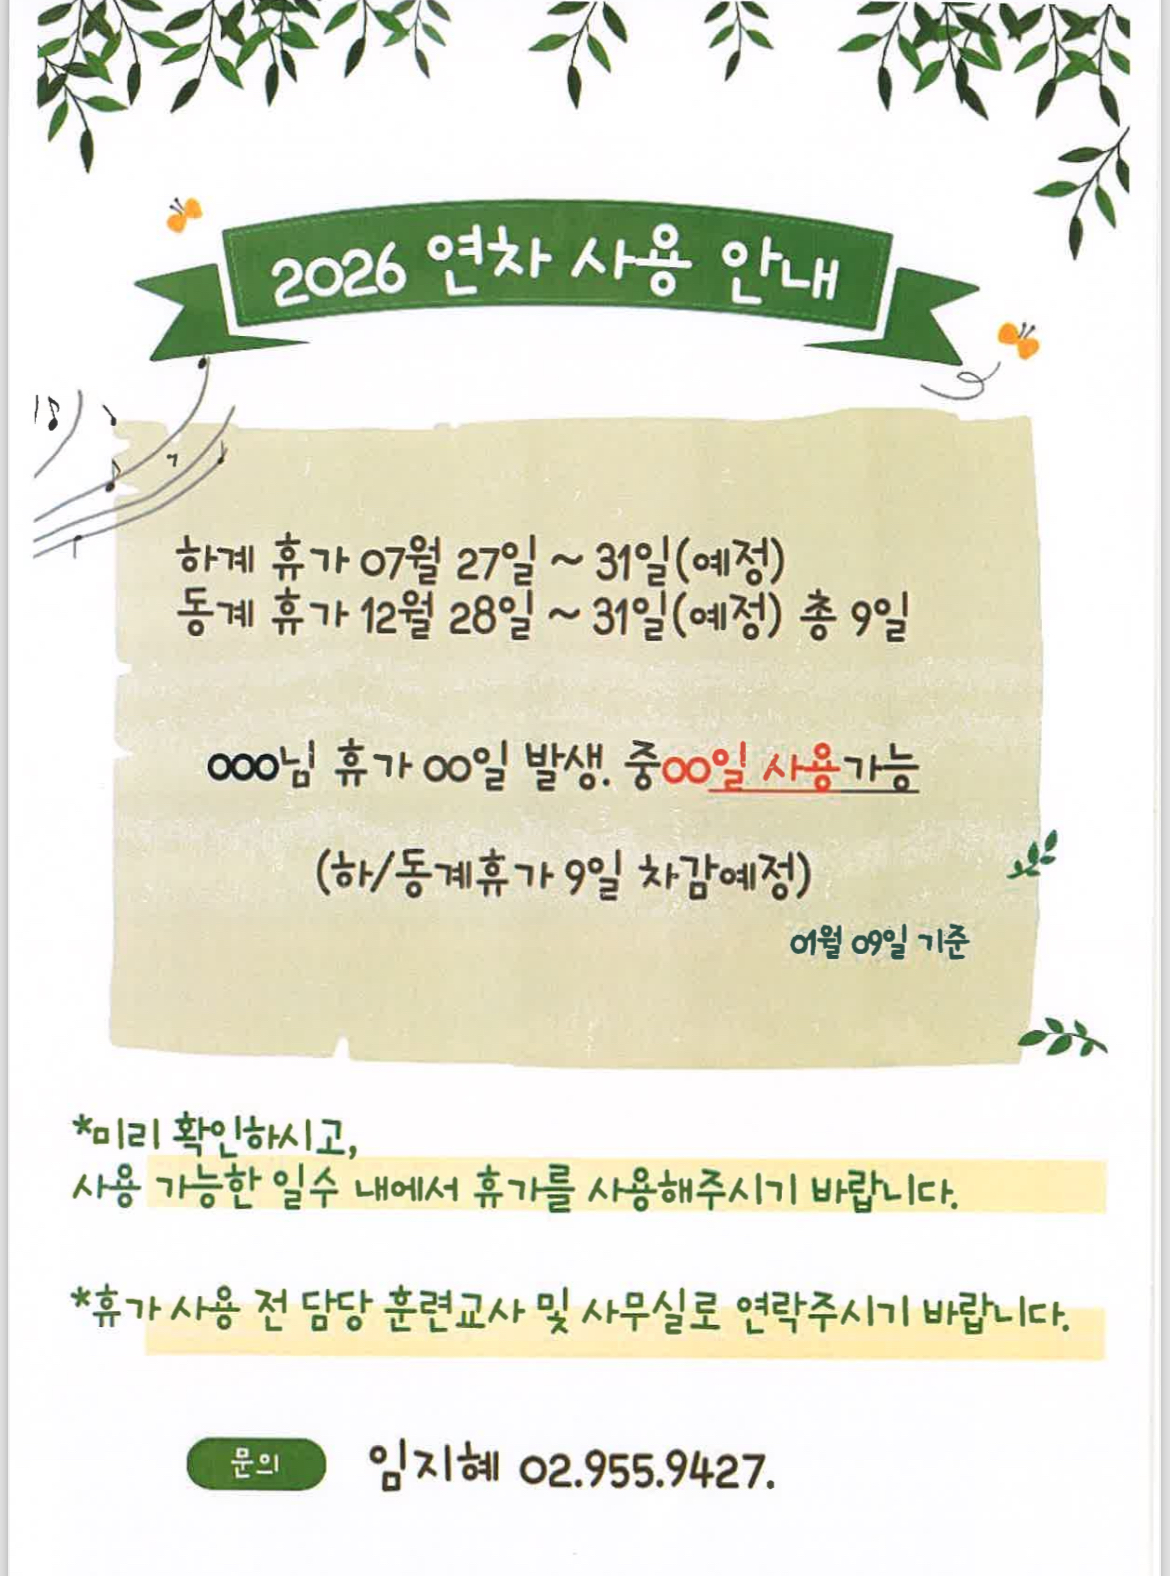 2026 연차 사용 안내
하계 휴가 07월 27일 ~ 31일(예정)
동계 휴가 12월 28일 ~ 31일(예정) 총 9일
000님 휴가 00일 발생. 중00일 사용가능
(하/동계휴가 9일 차감예정)
01월 09일 기준
*미리 확인하시고,
사용 가능한 일수 내에서 휴가를 사용해주시기 바랍니다.
*휴가 사용 전 담당 훈련교사 및 사무실로 연락주시기 바랍니다.
문의 임지혜 02.955.9427.